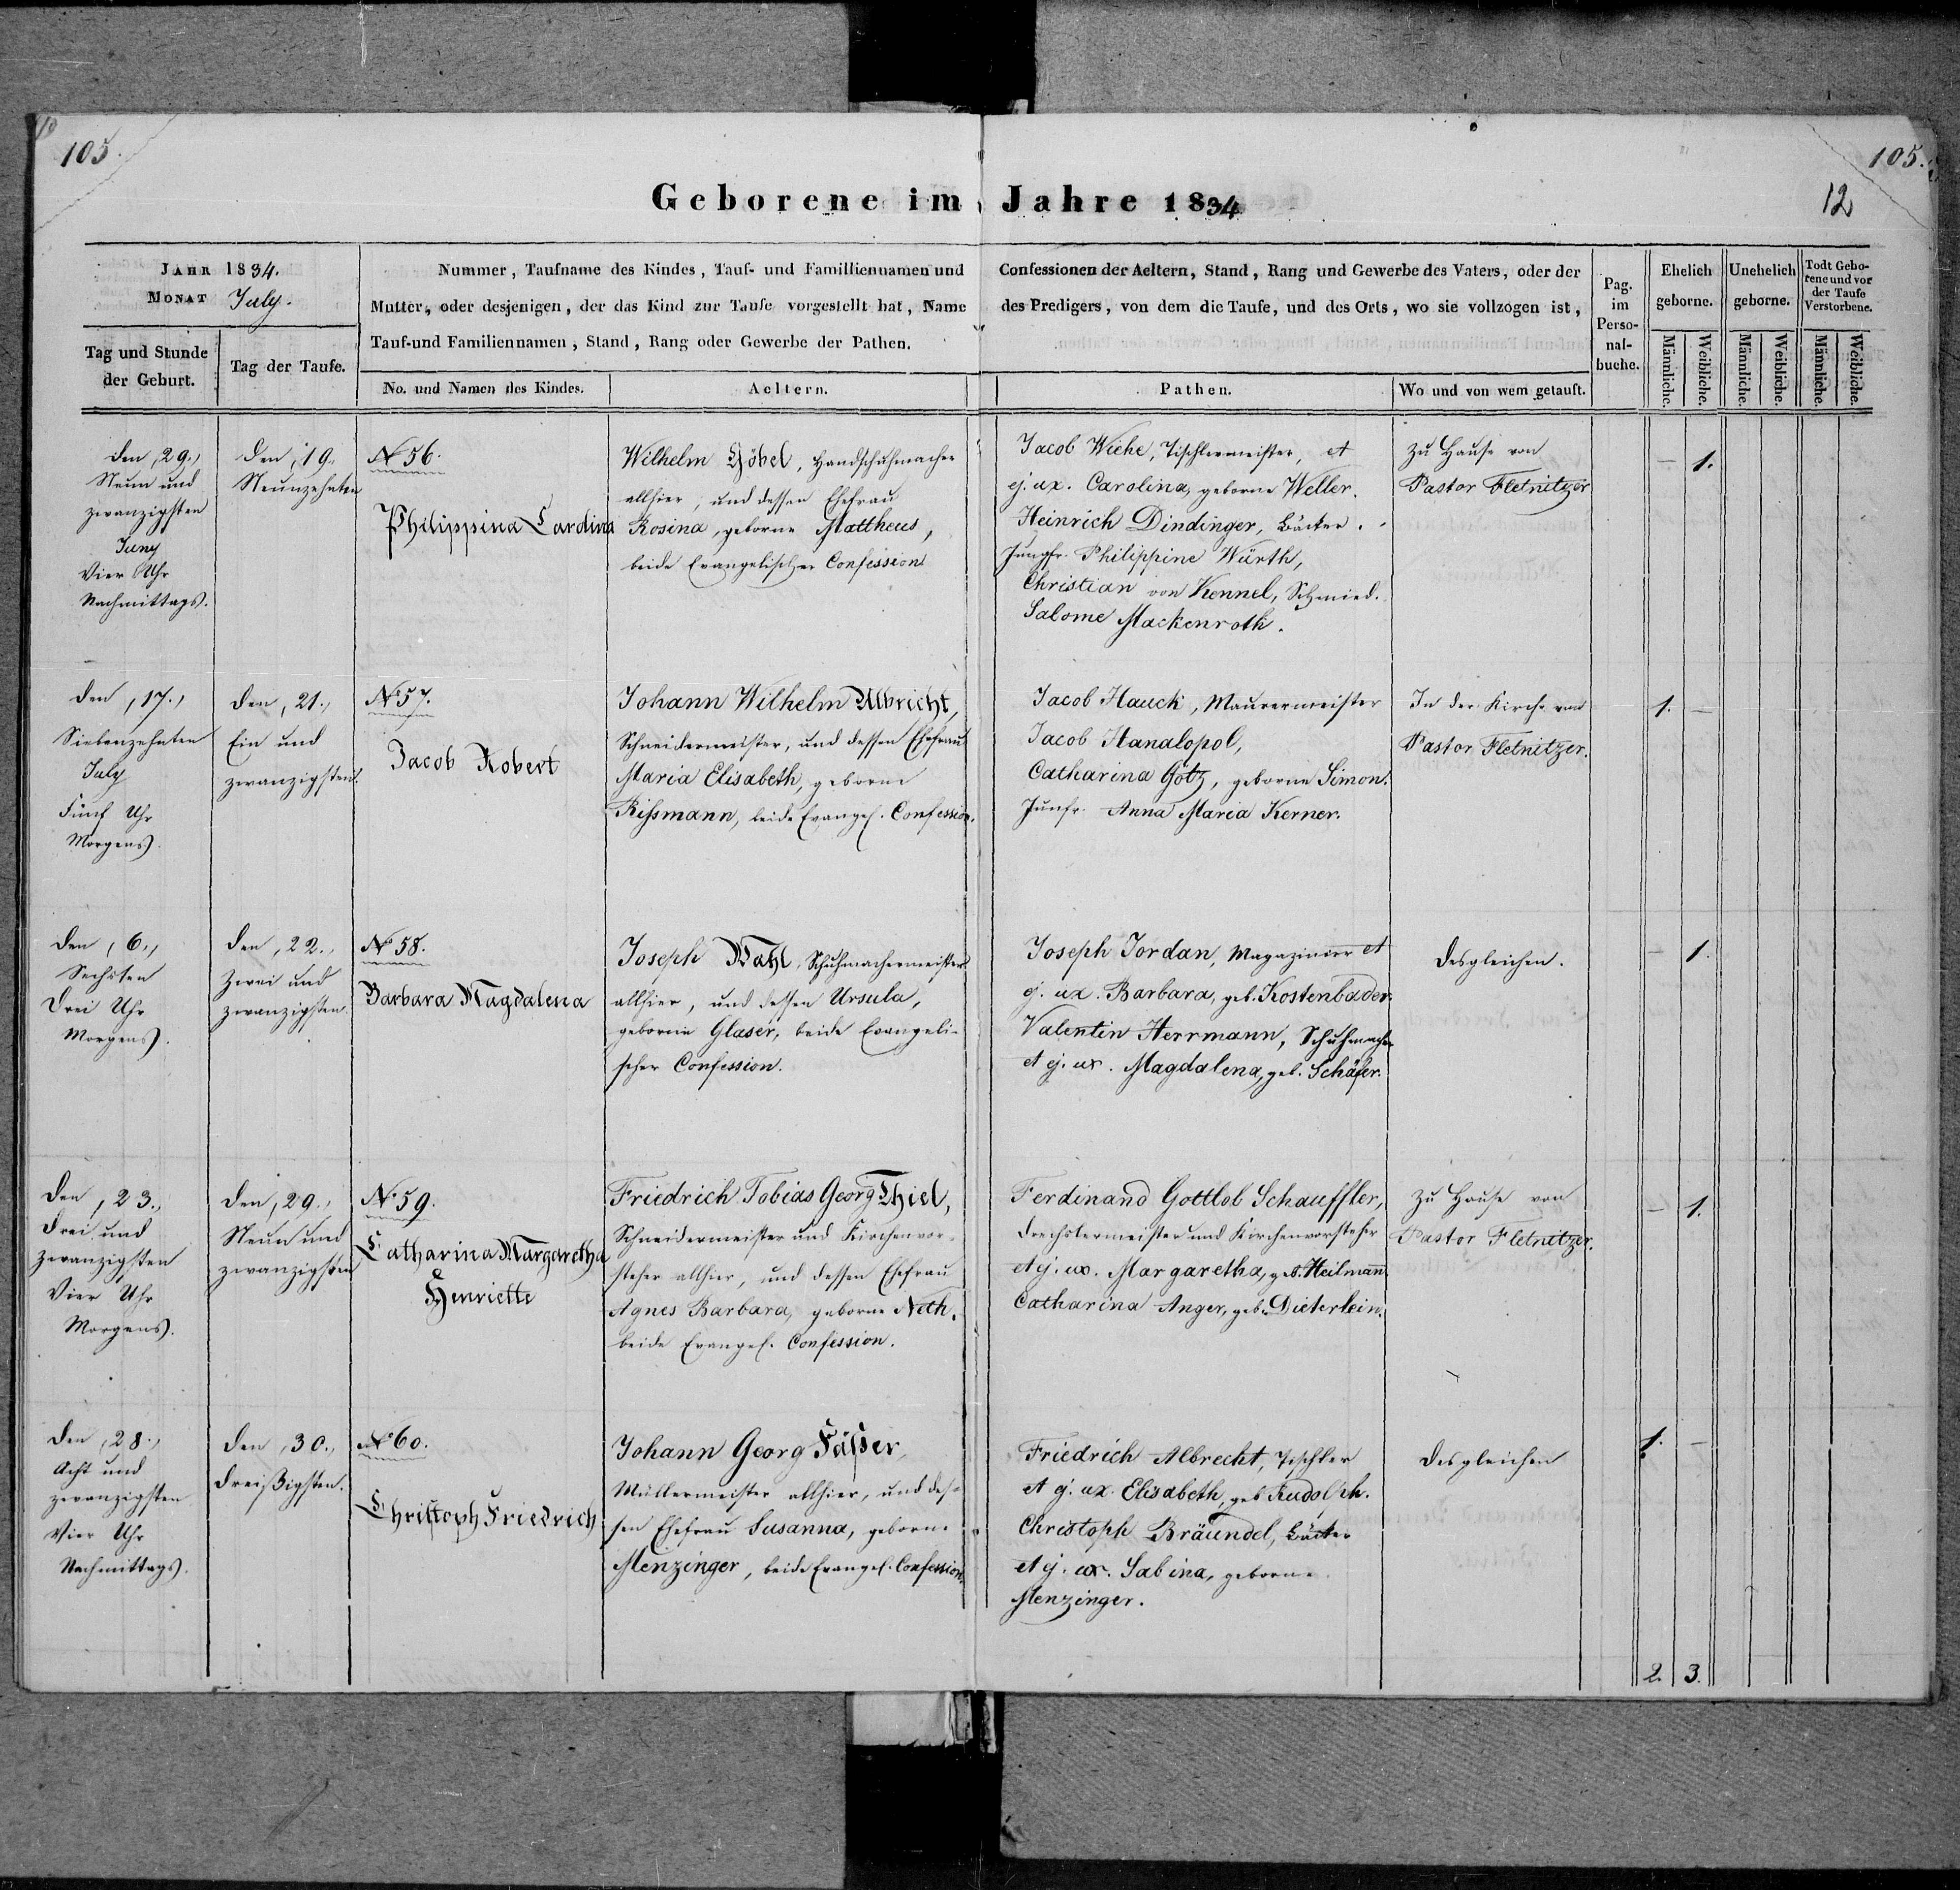 105.
105.
12
Geborene im Jahre 1834
JAHR 1834.
MONAT July.
Nummer, Taufname des Kindes, Tauf- und Familliennamen und
Mutter, oder desjenigen, der das Kind zur Taufe vorgestellt hat, Name
Tauf-und Familiennamen, Stand, Rang oder Gewerbe der Pathen.
Confessionen der Aeltern, Stand, Rang und Gewerbe des Vaters, oder der
des Predigers, von dem die Taufe, und des Orts, wo sie vollzogen ist,
Pag.
im
Perso-
nal-
buche.
Ehelich
geborne.
Unehelich
geborne.
Todt Gebo-
rene und vor
der Taufe
Verstorbene.
Tag und Stunde
der Geburt.
Tag der Taufe.
No. und Namen des Kindes.
Aeltern.
Pathen.
Wo und von wem getauft.
Männliche.
Weibliche.
Männliche.
Weibliche.
Männliche.
Weibliche.
den 29.,
Neun und
zwanzigsten
Juny
Vier Uhr
Nachmittags.
den 19.
Neunzehnten
No 56.
Philippina Carolina
Wilhelm Göbel, Handschuhmacher
allhier, und dessen Ehefrau
Rosina, geborne Mattheus,
beide Evangelischer Confession
Jacob Wiehe, Tischlermeister, et
ej. ux. Carolina, geborne Weller.
Heinrich Dindinger, Bäcker.
Jungfr. Philippine Würth,
Christian von Kennel, Schmied.
Salome Mackenroth.
Zu Hause von
Pastor Fletnitzer
– 1.
den 17.,
Siebenzehnten
July
Fünf Uhr
Morgens.
den 21.,
Ein und
zwanzigsten.
No 57.
Jacob Robert
Johann Wilhelm Albricht,
Schneidermeister, und dessen Ehefrau
Maria Elisabeth, geborne
Rißmann, beide Evangel. Confession.
Jacob Hauck, Maurermeister
Jacob Hanalopol,
Catharina Götz, geborne Simon.
Junfr. Anna Maria Kerner.
In der Kirche von
Pastor Fletnitzer.
1. –
den 6.,
Sechsten
Drei Uhr
Morgens.
den 22.,
Zwei und
zwanzigsten.
No 58.
Barbara Magdalena
Joseph Wahl, Schuhmachermeister
allhier, und dessen Ursula,
geborne Glaser, beide Evangeli-
scher Confession.
Joseph Jordan, Magazineur et
ej. ux. Barbara, geb. Kostenbader.
Valentin Herrmann, Schuhmacher
et ej. ux. Magdalena, geb. Schäfer.
Desgleichen.
– 1.
den 23.,
Drei und
zwanzigsten
Vier Uhr
Morgens.
den 29.,
Neun und
zwanzigsten
No 59.
Catharina Margaretha
Henriette
Friedrich Tobias Georg Thiel,
Schneidermeister und Kirchenvor-
steher allhier, und dessen Ehefrau
Agnes Barbara, geborne Neth.
beide Evangel. Confession.
Ferdinand Gottlob Schauffler,
Drechslermeister und Kirchenvorsteher
et ej. ux. Margaretha, geb. Heilmann
Catharina Anger, geb. Dieterlein.
Zu Hause von
Pastor Fletnitzer.
– 1.
den 28.,
Acht und
zwanzigsten
Vier Uhr
Nachmittags.
den 30.,
Dreißigsten.
No 60.
Christoph Friedrich
Johann Georg Fäßer,
Müllermeister allhier, und des-
sen Ehefrau Susanna, geborne
Menzinger, beide Evangel. Confession.
Friedrich Albrecht, Tischler
et ej. ux. Elisabeth, geb Rudolph.
Christoph Bräundel, Bäcker
et ej. ux. Sabina, geborne
Menzinger.
Desgleichen
1. –
2. 3.